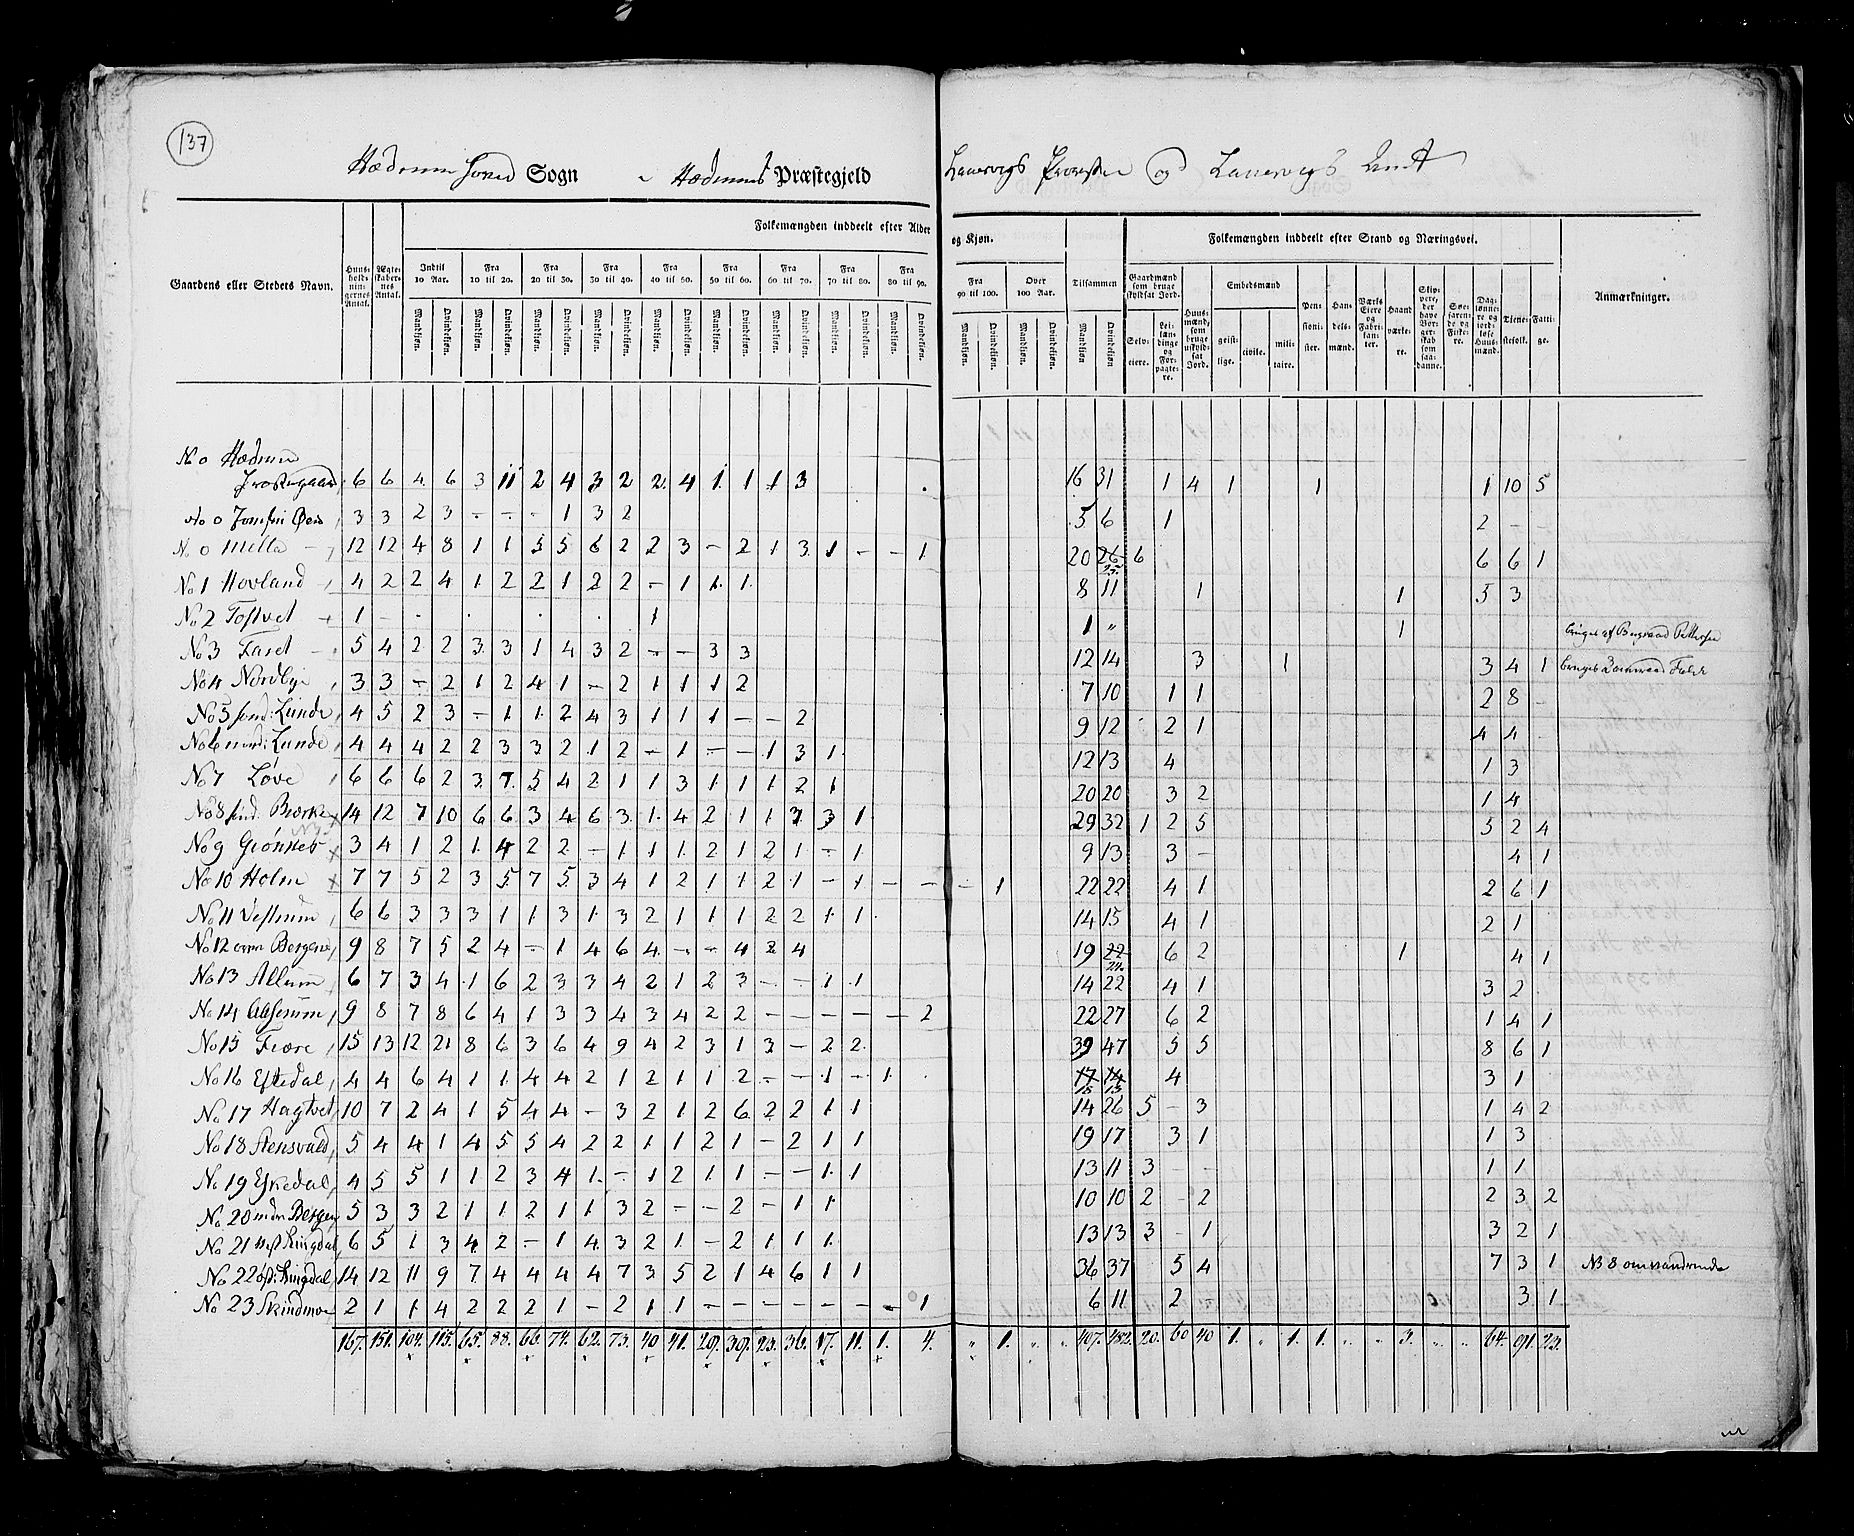 137
Hædrum Sogn Hædrums Præstegjeld Laurvigs Provstie og Laurvigs Amt
Gaardens eller Stedets Navn. Huus-holdnin-gernes Antal. Ægte-skaber-nes Antal. Folkemængden inddeelt efter Alder og Kjøn. Tilsammen Folkemængden inddeelt efter Stand og Næringsvei. Anmærkninger.
Indtil 10 Aar. Fra 10 til 20. Fra 20 til 30. Fra 30 til 40. Fra 40 til 50. Fra 50 til 60. Fra 60 til 70. Fra 70 til 80. Fra 80 til 90. Fra 90 til 100. Over 100 Aar. Gaardmænd som bruge skyldsat Jord. Huus-mænd, som bruge uskyld-sat Jord. Embedsmænd Pen-sioni-ster. Han-dels-mænd. Værks Eiere og Fabri-kan-ter. Haand værke-re. Skip-pere, der have Bor-ger-skab som saa-danne. Søe-faren-de og Fiske-re. Dag-lønne-re og jord-løse Huus-mænd. Tiene-stefolk. Fatti-ge.
Mandkjøn. Qvindekjøn. Mandkjøn. Qvindekjøn. Mandkjøn. Qvindekjøn. Mandkjøn. Qvindekjøn. Mandkjøn. Qvindekjøn. Mandkjøn. Qvindekjøn. Mandkjøn. Qvindekjøn. Mandkjøn. Qvindekjøn. Mandkjøn. Qvindekjøn. Mandkjøn. Qvindekjøn. Mandkjøn. Qvindekjøn. Mandkjøn Qvindekjøn. Selv-eiere. Lei-lænd-inge og For-pagte-re. geist-lige. civile. mili-taire.
No 0 Hædrum
Præstegaard, 6 6 4 6 3 11 2 4 3 2 2 4 1 1 1 3 16 31 1 4 1 1 1 10 5
No 0 3 3 2 3 - - - 1 3 2 5 6 1 2 - -
No 0 Mella 12 12 4 8 1 1 5 5 6 2 2 3 - 2 1 3 1 - - 1 20 26 25 6 6 6 1
No 1 Hovland 4 2 2 4 1 2 2 1 2 2 - 1 1 1 8 11 1 1 5 3
No 2 Tostvet 1 - 1 1 " 1
No 3 Faret 5 4 2 2 3 3 1 4 3 2 - - 3 3 12 14 3 1 3 4 1
No 4 Nordbye 3 3 - 2 1 2 4 1 - 2 1 1 1 2 7 10 1 1 2 8 -
No 5 sond: Lunde 4 5 2 3 - 1 1 2 4 3 1 1 1 - - 2 9 12 2 1 4 4
No 6 nord: Lunde 4 4 4 2 2 3 3 2 1 2 - 1 - - 1 3 1 12 13 4 1 3
No 7 Løve 6 6 6 2 3 7 5 4 2 1 1 3 1 1 1 2 1 20 20 3 2 1 4
No 8 sind. Bierke 14 12 7 10 6 6 3 4 6 3 1 4 2 1 1 7 3 1 29 32 1 2 5 5 2 4
No 9 Grønneb 3 4 1 2 1 4 2 2 - 1 1 1 2 1 2 1 - 1 9 13 3 - 4 1
No 10 Holm 7 7 5 2 3 5 7 5 3 4 1 2 1 1 2 1 - 1 - - - 1 22 22 4 1 2 6 1
No 11 Vestrum 6 6 3 3 3 1 1 3 1 3 2 1 1 1 2 2 1 1 14 15 4 1 2 1
No 12 øvre Bergene, 9 8 7 5 2 4 - 1 4 6 4 - - 4 2 4 19 22 24 6 2 1 4 1
No 13 Allum 6 7 3 4 1 6 2 3 3 4 2 1 2 3 - - 1 1 14 22 4 1 3 2
No 14 9 8 7 8 6 4 1 3 3 4 3 4 2 2 - - - - - 2 22 27 6 2 1 4 1
No 15 Fiære 15 13 12 21 8 6 3 6 4 9 4 2 3 1 3 - 2 2 39 47 5 5 8 6 1
No 16 Eftedal, 4 4 6 4 1 1 4 4 2 1 2 1 1 2 - - 1 - 1 17 14 15 13 4 3 1
No 17 Hagtvet 10 7 2 4 1 5 4 4 - 3 2 1 2 6 2 2 1 1 14 26 5 - 3 1 4 2
No 18 Stensvald, 5 4 4 1 4 5 5 4 2 2 1 1 2 1 - 2 1 1 19 17 3 1 1 3
No 19 Eskedal, 4 5 5 1 1 2 3 4 1 - 1 2 1 1 - - 1 1 13 11 3 - - 1 1
No 20 nedre Bergene 5 3 3 2 1 1 2 1 1 3 2 - - 2 - 1 1 10 10 2 - 2 2 3 2
No 21 vest Ringdal, 6 5 1 3 4 2 - 1 4 3 2 1 - 2 1 1 1 13 13 3 - 1 3 2 1
No 22 øst: Ringdal, 14 12 11 9 7 4 4 4 4 7 3 5 2 1 4 6 1 1 36 37 5 4 7 3 1 NB 8 omvandrende
No 23 Skindmoe 2 1 1 4 2 2 2 1 - 2 1 1 - - - - - - - 1 6 11 2 - 3 1
167. 151. 104. 115. 65. 88. 66. 74. 62. 73. 40 41. 29. 39. 23. 36. 17. 11. 1. 4. " 1. " " 407. 482. 20. 60 40 1. " 1. 1. " " 3. " " 64. 91. 23.